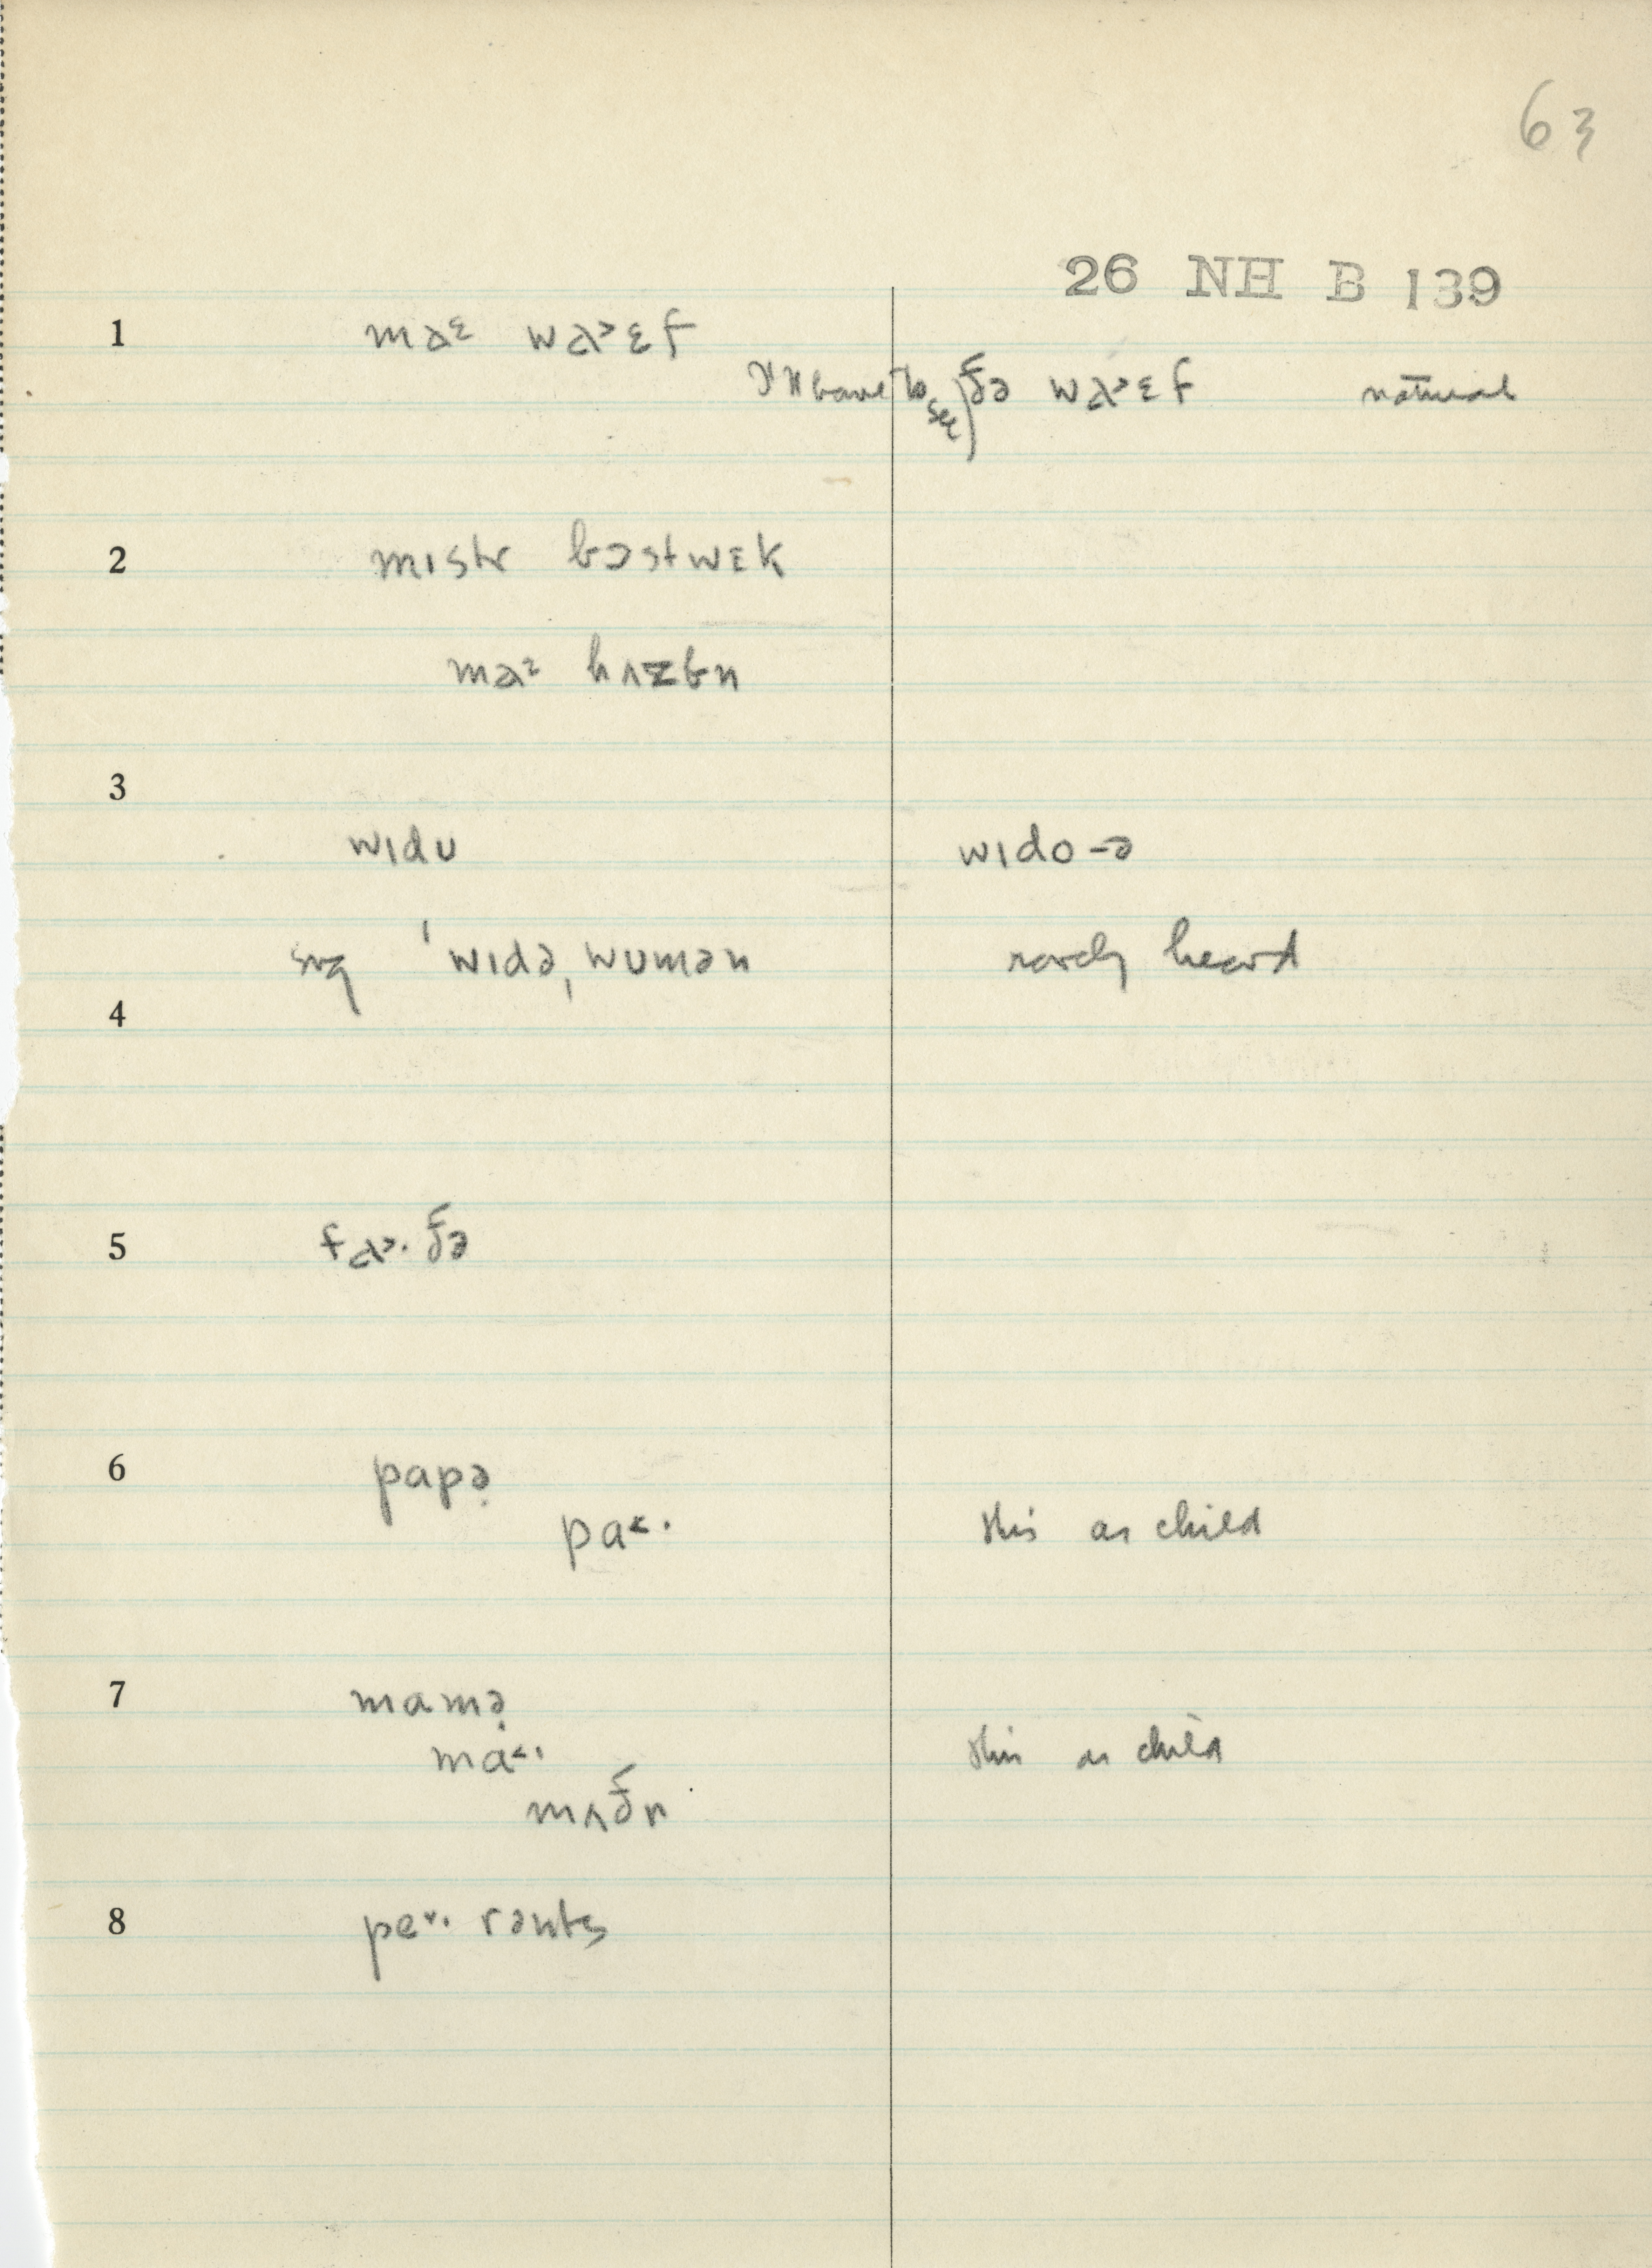 63
26 NH B 139
1 maᵋ wa˃ɛf
I'll have to see) ðə wa˃ɛf natural
2 mɪstr bɔstwɛk
ma² hʌzbn
3
wɪdu wɪdo-ə
sug ˈwɪdəˌwumən rarely heard
4
5 fa˃·ðə
6 papə̣
pa˂· this as child
7 mamə̣
ma˂· this as child
mʌðr
8 pe˅·rənts